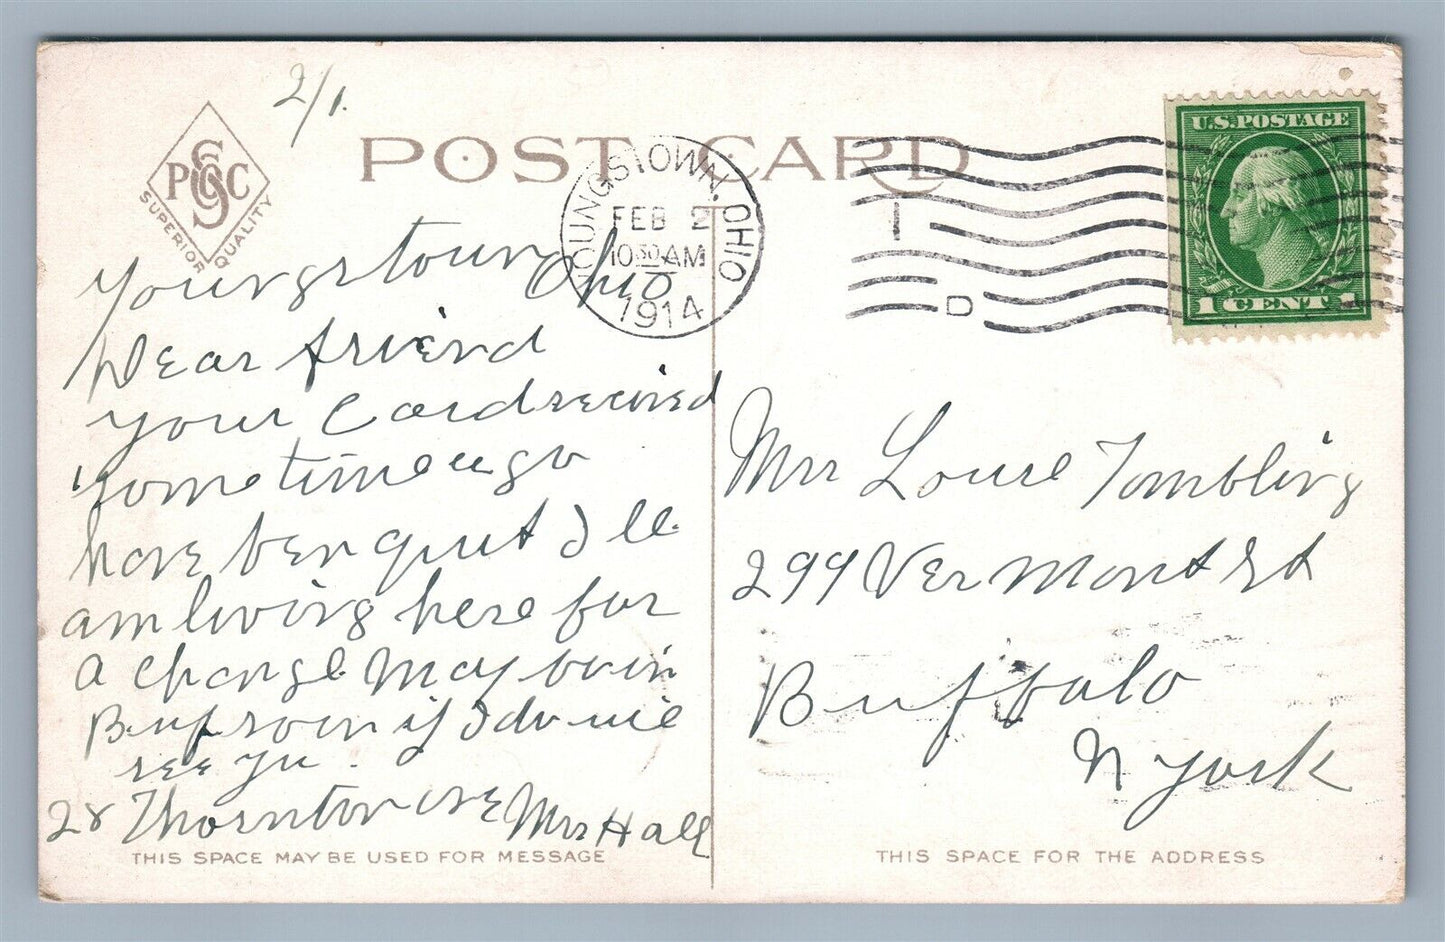 2/1.
PGSCO
SUPERIOR QUALITY
POST CARD
YOUNGSTOWN, OHIO
FEB 2
10 30 AM
1914
1
D
U.S. POSTAGE
1 CENT 1
Youngstown Ohio
Dear friend
your Card recived
some time ago
have ben quit Ill
am living here for
a change may be in
Buf soon if I do wil
see yu.
28 Thornton ave Mrs Hall
THIS SPACE MAY BE USED FOR MESSAGE
Mrs Louise Tombling
299 Vermont St
Buffalo
N York
THIS SPACE FOR THE ADDRESS